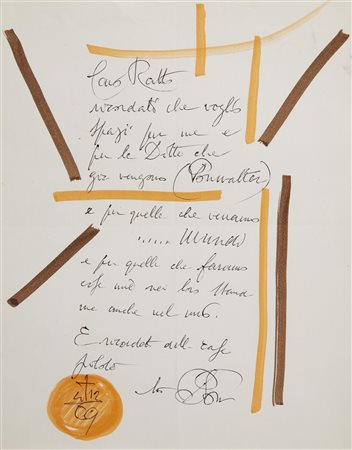 Caro Ratto
ricordati che voglio
spazi per me e
per le Ditte che
già vengono (Ponwalter)
e per quelle che verranno
......
e per quelle che faranno
cose mie nei loro Stand
ma anche nel mio.
E ricordati delle case
pilota
4 12
69